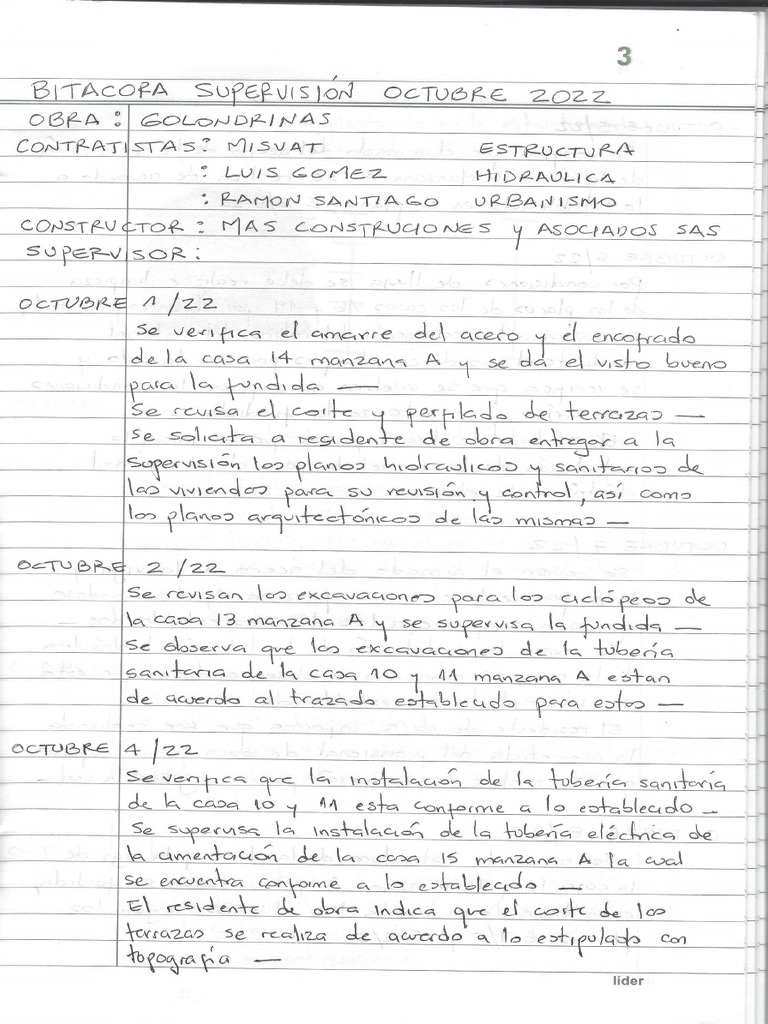 3
BITACORA SUPERVISIÓN OCTUBRE 2022
OBRA : GOLONDRINAS
CONTRATISTAS : MISVAT ESTRUCTURA
: LUIS GOMEZ HIDRAULICA
: RAMON SANTIAGO URBANISMO
CONSTRUCTOR : MAS CONSTRUCIONES y ASOCIADOS SAS
SUPERVISOR :
OCTUBRE 1/22
Se verifica el amarre del acero y el encofrado
de la casa 14 manzana A y se da el visto bueno
para la fundida —
Se revisa el corte y perfilado de terrazas —
Se solicita a residente de obra entregar a la
supervisión los planos hidraulicos y sanitarios de
las viviendas para su revisión y control, así como
los planos arquitectónicos de las mismas —
OCTUBRE 2/22
Se revisan las excavaciones para los ciclópeos de
la casa 13 manzana A y se supervisa la fundida —
Se observa que las excavaciones de la tubería
sanitaria de la casa 10 y 11 manzana A estan
de acuerdo al trazado establecido para estos —
OCTUBRE 4/22
Se verifica que la instalación de la tubería sanitaria
de la casa 10 y 11 esta conforme a lo establecido —
Se supervisa la instalación de la tubería eléctrica de
la cimentación de la casa 15 manzana A la cual
se encuentra conforme a lo establecido —
El residente de obra indica que el corte de las
terrazas se realiza de acuerdo a lo estipulado con
topografía —
líder